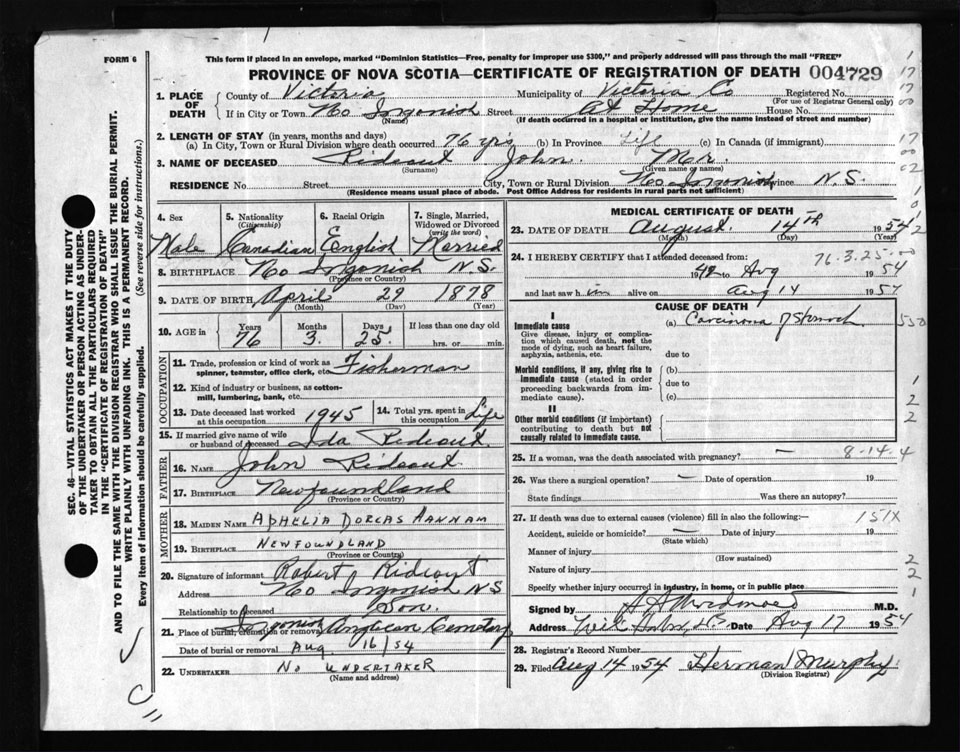 FORM 6
This form if placed in an envelope, marked "Dominion Statistics—Free, penalty for improper use $300," and properly addressed will pass through the mail "FREE"
PROVINCE OF NOVA SCOTIA—CERTIFICATE OF REGISTRATION OF DEATH 004729
SEC. 46—VITAL STATISTICS ACT MAKES IT THE DUTY
OF THE UNDERTAKER OR PERSON ACTING AS UNDER-
TAKER TO OBTAIN ALL THE PARTICULARS REQUIRED
IN THE "CERTIFICATE OF REGISTRATION OF DEATH"
AND TO FILE THE SAME WITH THE DIVISION REGISTRAR WHO SHALL ISSUE THE BURIAL PERMIT.
WRITE PLAINLY WITH UNFADING INK. THIS IS A PERMANENT RECORD.
Every item of information should be carefully supplied. (See reverse side for instructions.)
1. PLACE OF DEATH
County of Victoria Municipality of Victoria Co Registered No.
(For use of Registrar General only)
If in City or Town No Ingonish Street At Home House No.
(Name) (If death occurred in a hospital or institution, give the name instead of street and number)
2. LENGTH OF STAY (in years, months and days)
(a) In City, Town or Rural Division where death occurred 76 yrs (b) In Province Life (c) In Canada (if immigrant)
3. NAME OF DECEASED Rideout John
(Surname) (Given name or names)
RESIDENCE No. Street City, Town or Rural Division No Ingonish Province N.S.
(Residence means usual place of abode. Post Office Address for residents in rural parts not sufficient)
4. Sex Male
5. Nationality (Citizenship) Canadian
6. Racial Origin English
7. Single, Married, Widowed or Divorced (write the word) Married
8. BIRTHPLACE No Ingonish N.S.
(Province or Country)
9. DATE OF BIRTH April 29 1878
(Month) (Day) (Year)
10. AGE in Years 76 Months 3 Days 25 If less than one day old hrs. or min.
OCCUPATION
11. Trade, profession or kind of work as spinner, teamster, office clerk, etc. Fisherman
12. Kind of industry or business, as cotton-mill, lumbering, bank, etc.
13. Date deceased last worked at this occupation 1945 14. Total yrs. spent in this occupation Life
15. If married give name of wife or husband of deceased Ida Rideout
FATHER
16. NAME John Rideout
17. BIRTHPLACE Newfoundland
(Province or Country)
MOTHER
18. MAIDEN NAME APHELIA DORCAS HANNAM
19. BIRTHPLACE NEWFOUNDLAND
(Province or Country)
20. Signature of informant Robert Rideout
Address No Ingonish N S
Relationship to deceased Son
21. Place of burial, cremation or removal Ingonish Anglican Cemetary
Date of burial or removal Aug 16/54
22. UNDERTAKER NO UNDERTAKER
(Name and address)
MEDICAL CERTIFICATE OF DEATH
23. DATE OF DEATH August 14TH 1954
(Month) (Day) (Year)
24. I HEREBY CERTIFY that I attended deceased from: 76.3.25.00
to Aug 1954
and last saw him alive on Aug 14 1954
CAUSE OF DEATH
I
Immediate cause (a) Carcinoma of Stomach
Give disease, injury or complica-
tion which caused death, not the
mode of dying, such as heart failure,
asphyxia, asthenia, etc. due to
Morbid conditions, if any, giving rise to (b)
immediate cause (stated in order due to
proceeding backwards from im-
mediate cause). (c)
II
Other morbid conditions (if important)
contributing to death but not
causally related to immediate cause.
25. If a woman, was the death associated with pregnancy? — 8-14-4
26. Was there a surgical operation? — Date of operation 19
State findings Was there an autopsy?
27. If death was due to external causes (violence) fill in also the following:— 151X
Accident, suicide or homicide? — Date of injury 19
(State which)
Manner of injury
(How sustained)
Nature of injury
Specify whether injury occurred in industry, in home, or in public place
Signed by M.D.
Address Date Aug 17 1954
28. Registrar's Record Number
29. Filed Aug 14 1954 Herman Murphy
(Division Registrar)